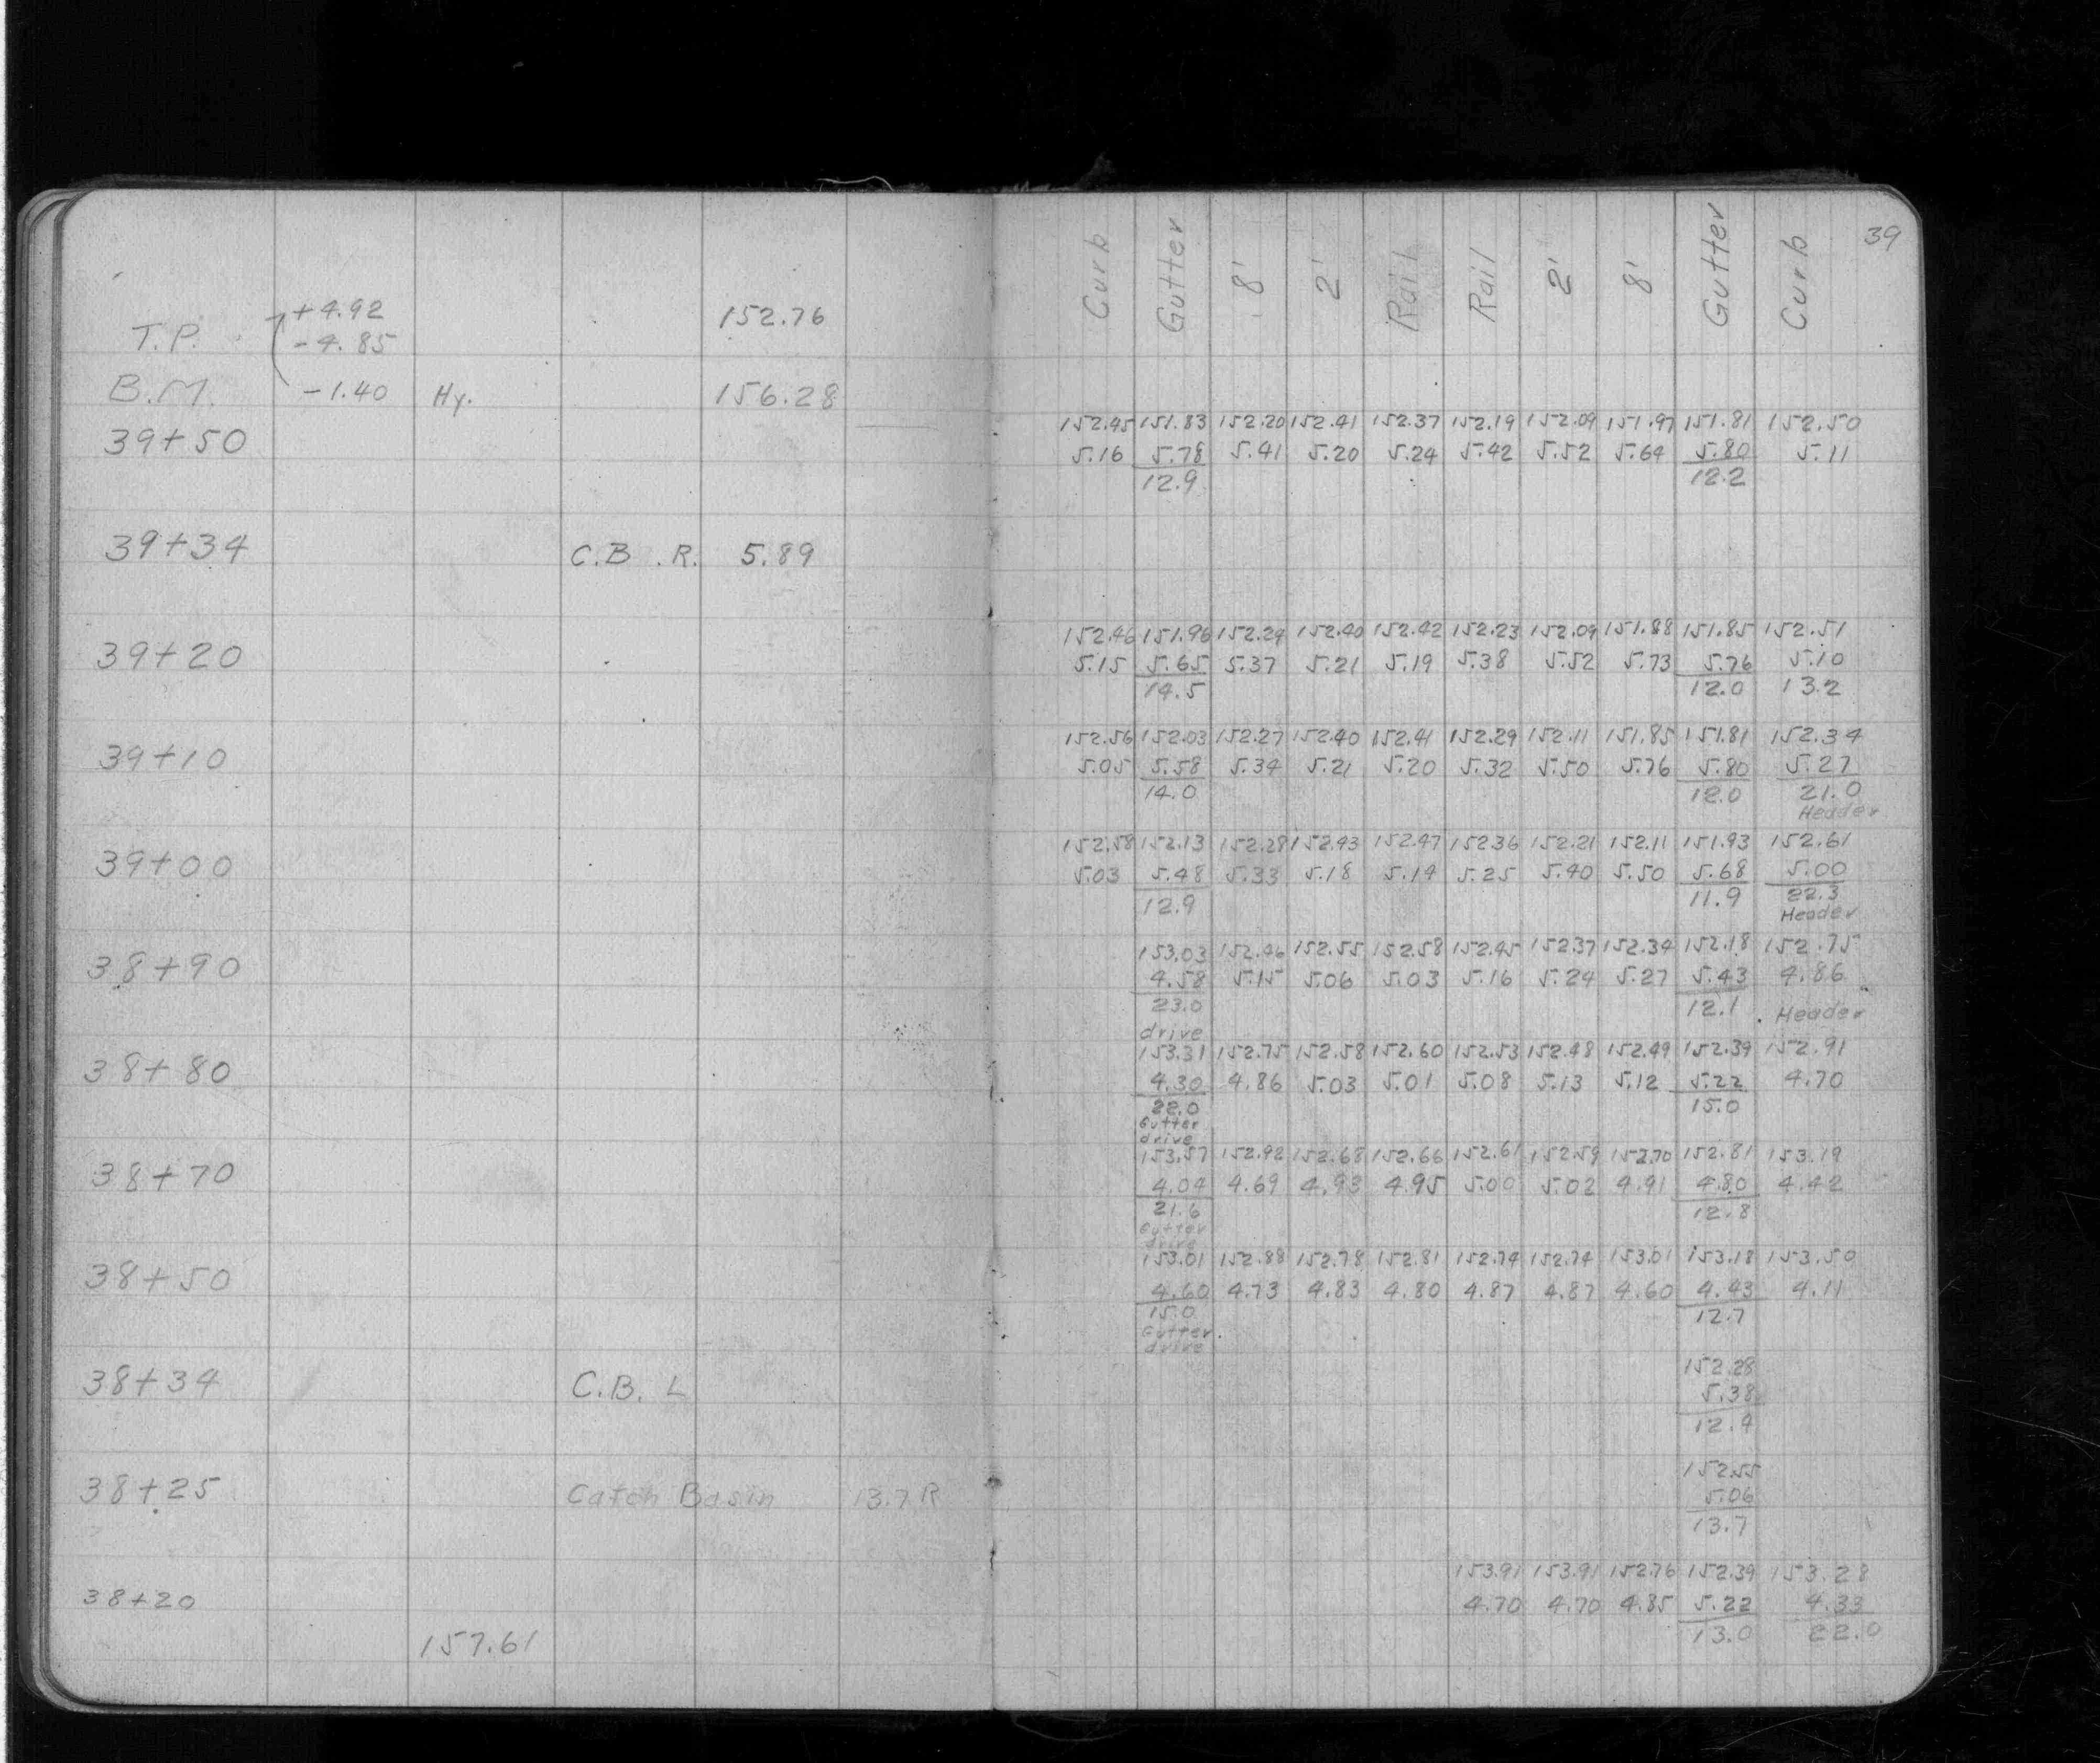 39
Curb Gutter 8' 2' Rail Rail 2' 8' Gutter Curb
+4.92 152.76
T.P. -4.85
B.M. -1.40 Hy. 156.28
152.45 151.83 152.20 152.41 152.37 152.19 152.09 151.97 151.81 152.50
39+50 5.16 5.78 5.41 5.20 5.24 5.42 5.52 5.64 5.80 5.11
12.9 12.2
39+34 C.B. R. 5.89
152.46 151.96 152.24 152.40 152.42 152.23 152.09 151.88 151.85 152.51
39+20 5.15 5.65 5.37 5.21 5.19 5.38 5.52 5.73 5.76 5.10
14.5 12.0 13.2
152.56 152.03 152.27 152.40 152.41 152.29 152.11 151.85 151.81 152.34
39+10 5.05 5.58 5.34 5.21 5.20 5.32 5.50 5.76 5.80 5.27
14.0 12.0 21.0
Header
152.58 152.13 152.28 152.43 152.47 152.36 152.21 152.11 151.93 152.61
39+00 5.03 5.48 5.33 5.18 5.14 5.25 5.40 5.50 5.68 5.00
12.9 11.9 22.3
Header
153.03 152.46 152.55 152.58 152.45 152.37 152.34 152.18 152.75
38+90 4.58 5.15 5.06 5.03 5.16 5.24 5.27 5.43 4.86
23.0 12.1 Header
drive
153.31 152.75 152.58 152.60 152.53 152.48 152.49 152.39 152.91
38+80 4.30 4.86 5.03 5.01 5.08 5.13 5.12 5.22 4.70
22.0 15.0
Gutter
drive
153.57 152.92 152.68 152.66 152.61 152.59 152.70 152.81 153.19
38+70 4.04 4.69 4.93 4.95 5.00 5.02 4.91 4.80 4.42
21.6 12.8
Gutter
drive
153.01 152.88 152.78 152.81 152.74 152.74 153.01 153.18 153.50
38+50 4.60 4.73 4.83 4.80 4.87 4.87 4.60 4.43 4.11
15.0 12.7
Gutter
drive
152.28
38+34 C.B. L 5.38
12.4
152.55
38+25 Catch Basin 13.7 R 5.06
13.7
153.91 153.91 152.76 152.39 153.28
38+20 4.70 4.70 4.85 5.22 4.33
157.61 13.0 22.0